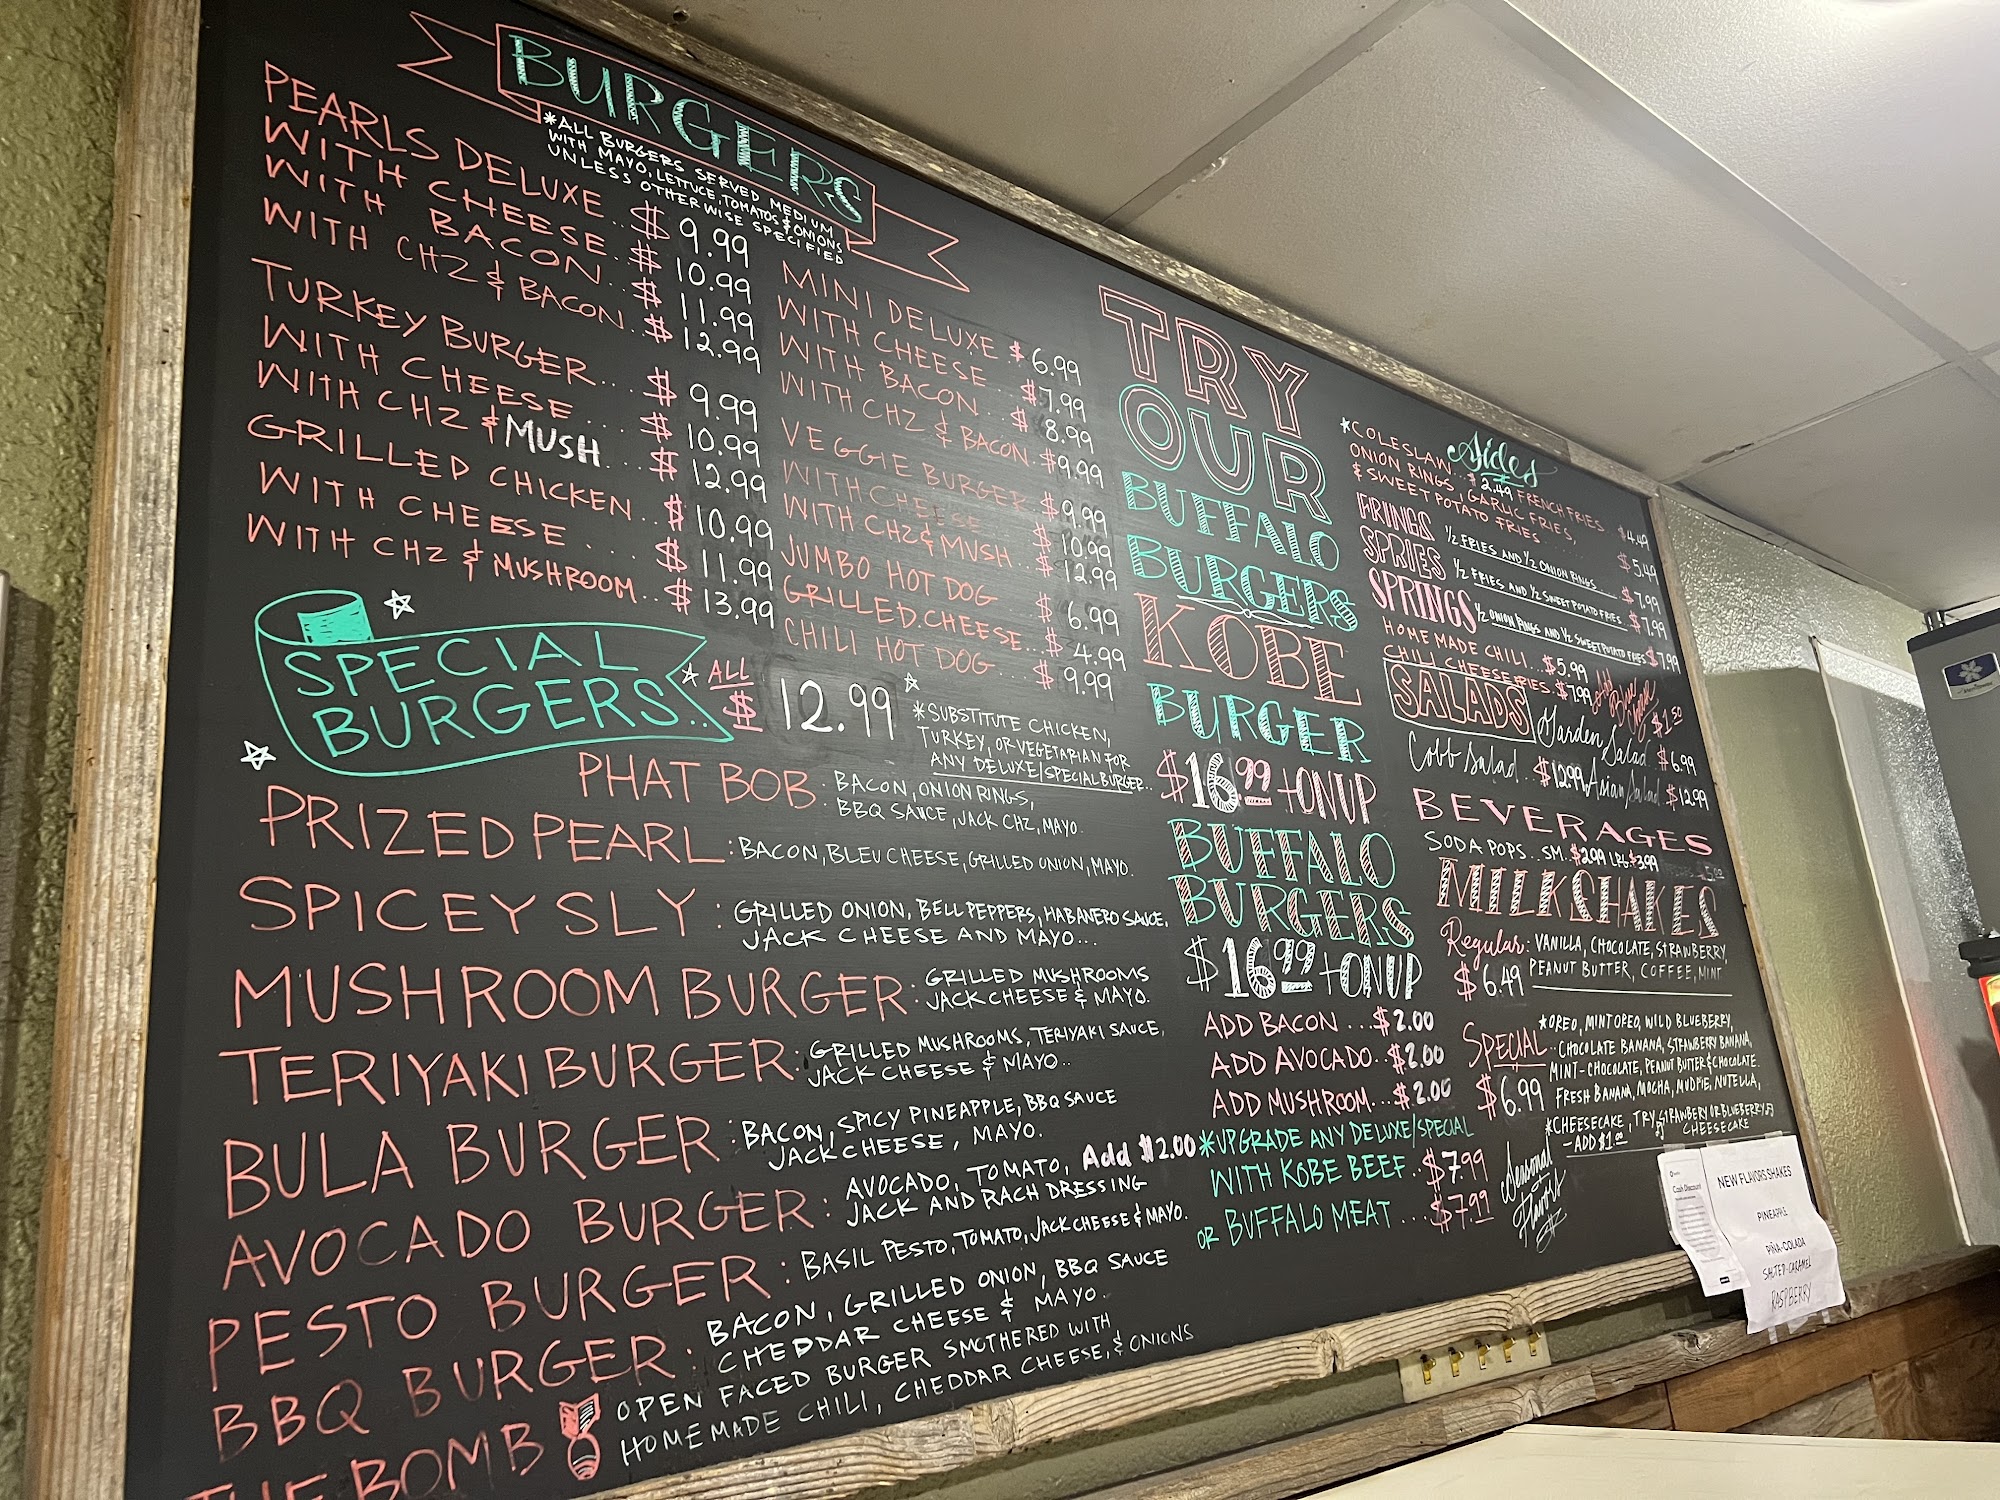 BURGERS
*ALL BURGERS SERVED MEDIUM
WITH MAYO, LETTUCE, TOMATOS & ONIONS
UNLESS OTHERWISE SPECIFIED
PEARLS DELUXE..$ 9.99
WITH CHEESE..$ 10.99
WITH BACON..$ 11.99
WITH CHZ & BACON..$ 12.99
TURKEY BURGER...$ 9.99
WITH CHEESE....$ 10.99
WITH CHZ & MUSH...$ 12.99
GRILLED CHICKEN..$ 10.99
WITH CHEESE....$ 11.99
WITH CHZ & MUSHROOM..$ 13.99
MINI DELUXE.$ 6.99
WITH CHEESE..$ 7.99
WITH BACON..$ 8.99
WITH CHZ & BACON.$9.99
VEGGIE BURGER.$ 9.99
WITH CHEESE..$ 10.99
WITH CHZ & MUSH..$ 12.99
JUMBO HOT DOG $ 6.99
GRILLED.CHEESE...$ 4.99
CHILI HOT DOG...$ 9.99
SPECIAL
BURGERS..
ALL
$ 12.99
*SUBSTITUTE CHICKEN,
TURKEY, OR VEGETARIAN FOR
ANY DELUXE/SPECIAL BURGER..
PHAT BOB: BACON, ONION RINGS,
BBQ SAUCE, JACK CHZ, MAYO.
PRIZED PEARL: BACON, BLEU CHEESE, GRILLED ONION, MAYO.
SPICEY SLY: GRILLED ONION, BELL PEPPERS, HABANERO SAUCE,
JACK CHEESE AND MAYO...
MUSHROOM BURGER: GRILLED MUSHROOMS
JACK CHEESE & MAYO.
TERIYAKI BURGER: GRILLED MUSHROOMS, TERIYAKI SAUCE,
JACK CHEESE & MAYO..
BULA BURGER: BACON, SPICY PINEAPPLE, BBQ SAUCE
JACK CHEESE, MAYO.
AVOCADO BURGER: AVOCADO, TOMATO, Add $2.00
JACK AND RACH DRESSING
PESTO BURGER: BASIL PESTO, TOMATO, JACK CHEESE & MAYO.
BBQ BURGER: BACON, GRILLED ONION, BBQ SAUCE
CHEDDAR CHEESE & MAYO.
THE BOMB OPEN FACED BURGER SMOTHERED WITH
HOMEMADE CHILI, CHEDDAR CHEESE, & ONIONS
TRY
OUR
BUFFALO
BURGERS
KOBE
BURGER
$16.99 + ON UP
BUFFALO
BURGERS
$16.99 + ON UP
ADD BACON...$2.00
ADD AVOCADO..$2.00
ADD MUSHROOM...$2.00
*UPGRADE ANY DELUXE/SPECIAL
WITH KOBE BEEF..$7.99
OR BUFFALO MEAT...$7.99
Sides
*COLESLAW...$2.49 FRENCH FRIES $4.49
ONION RINGS, GARLIC FRIES,
& SWEET POTATO FRIES... $5.49
FRINGS 1/2 FRIES AND 1/2 ONION RINGS $7.99
SPRIES 1/2 FRIES AND 1/2 SWEET POTATO FRIES $7.99
SPRINGS 1/2 ONION RINGS AND 1/2 SWEET POTATO FRIES $7.99
HOME MADE CHILI..$5.99
CHILI CHEESE FRIES.$7.99
$1.50
SALADS
Garden Salad..$6.99
Cobb Salad..$12.99 Asian Salad $12.99
BEVERAGES
SODA POPS..SM.$2.99 LRG.$3.99
MILKSHAKES
Regular: VANILLA, CHOCOLATE, STRAWBERRY,
$6.49 PEANUT BUTTER, COFFEE, MINT
SPECIAL *OREO, MINT OREO, WILD BLUEBERRY,
CHOCOLATE BANANA, STRAWBERRY BANANA,
MINT-CHOCOLATE, PEANUT BUTTER & CHOCOLATE
$6.99 FRESH BANANA, MOCHA, MUDPIE, NUTELLA,
*CHEESECAKE, TRY STRAWBERY OR BLUEBERRY
-ADD $1.00 CHEESECAKE
Seasonal
Flavors
Cash Discount
NEW FLAVORS SHAKES
PINEAPPLE
PIÑA-COLADA
SALTED-CARAMEL
RASPBERRY